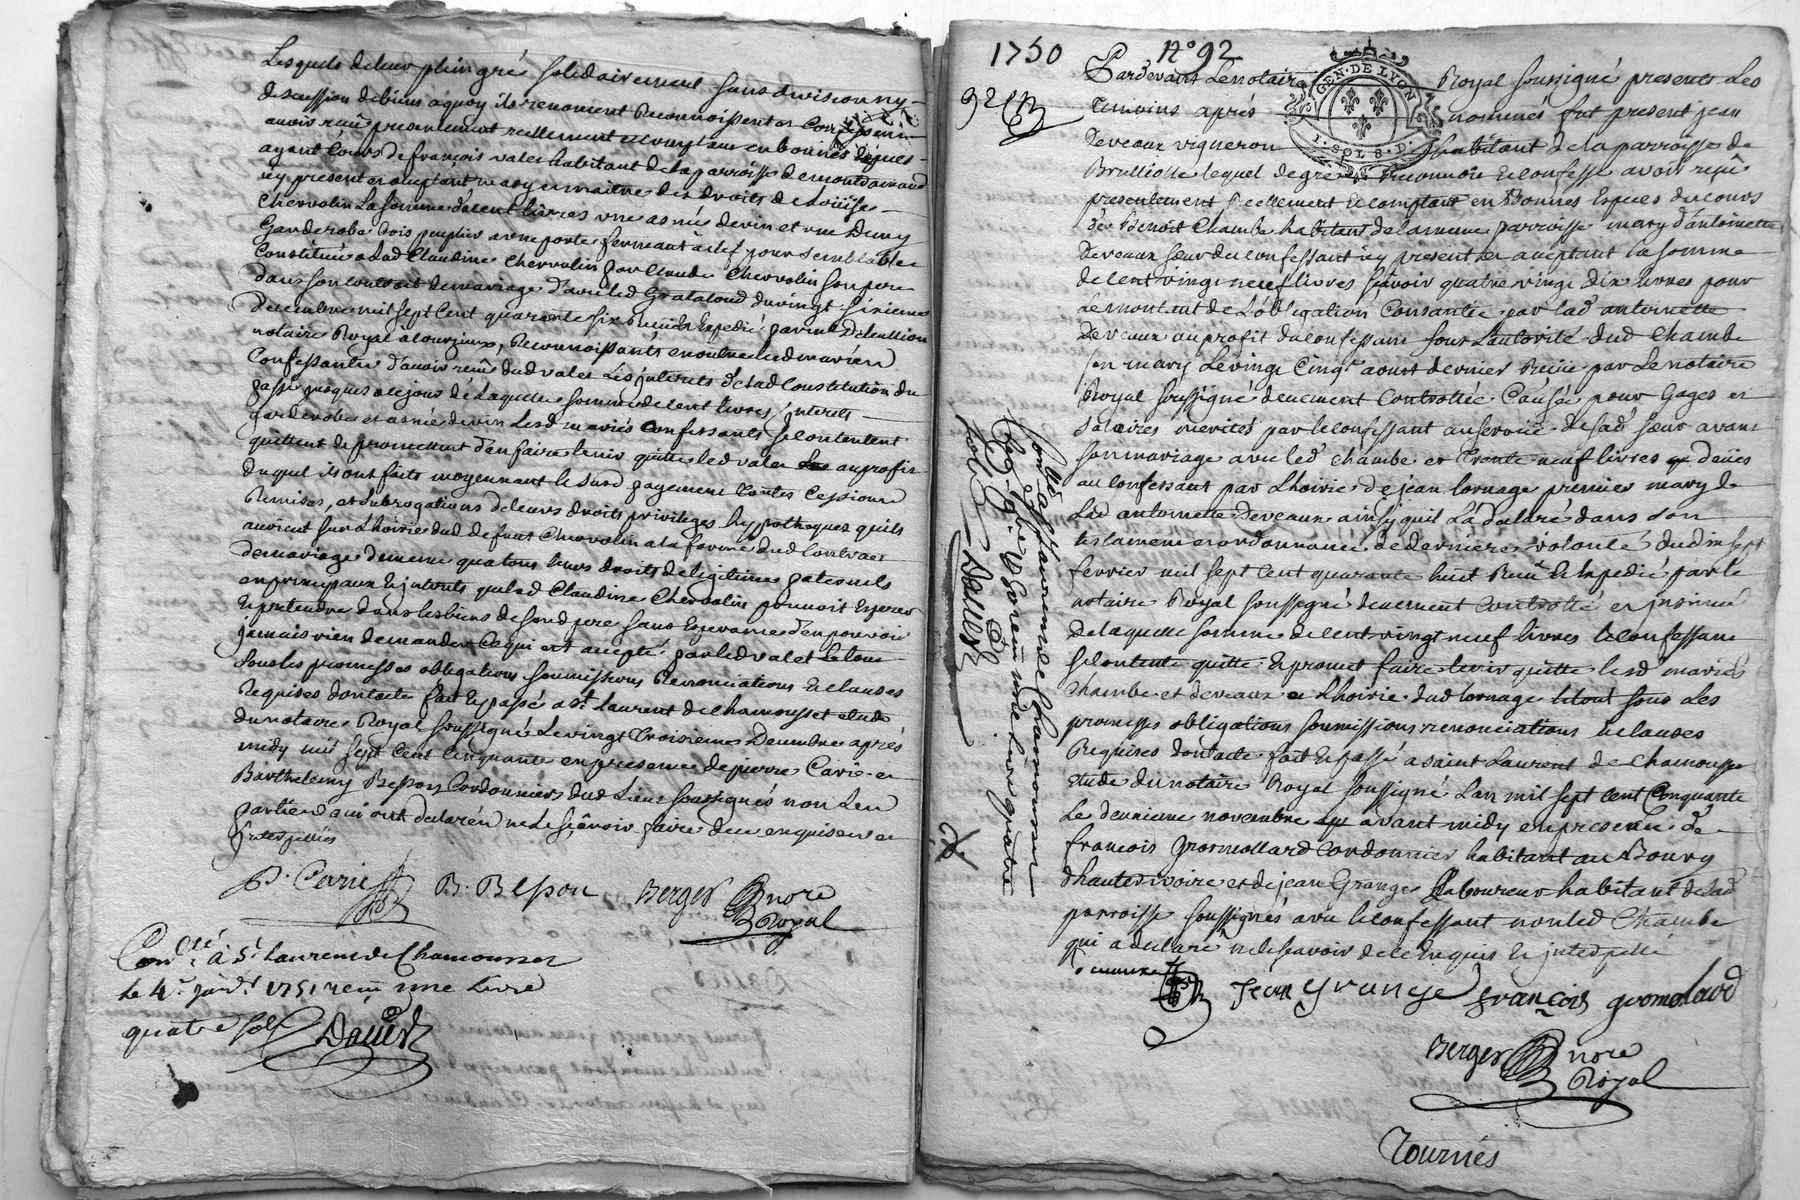 Lesquels de leur plein gré solidairement sans division ny
discussion de biens aquoy ils renoncent Reconnoissent et Confessent
avoir reçû presentement reellement et comptant en bonnes Espèces
ayant Cours de françois valet habitant de la parroisse de montromand
icy present et acceptant mary et maitre des droits de Loüise
Chervolin La somme de cent livres une asnée de vin et une Demy
Garderobe bois peuplier a une porte fermant a clef pour semblable
Constituée a Lad Claudine Chervolin par Claude Chervolin son pere
dans son contrat de mariage d'avec led Grataloud du vingt sixieme
decembre mil sept Cent quarante six Reçû et Expedié par me
notaire Royal a Courzieux, Reconnoissants en outre lesd mariés
Confessants d'avoir reçû dud valet Les interets de lad Constitution du
passé jusques a ce jour de Laquelle somme de cent livres, interets
garderobe et asnée de vin Lesd mariés Confessants se contentent
quittent et promettent d'en faire tenir quitte led valet au profit
duquel ils ont faits moyennant le susd payement toutes Cessions
Remises, et subrogations de leurs droits privileges hypotheques qu'ils
avoient sur L'hoirie dud defunt Chervolin a la forme dud Contract
de mariage de meme que tous leurs droits de legitime paternels
en principaux et interets que lad Claudine Chervolin pouvoit Esperer
et pretendre dans les biens de sond pere sans Esperance d'en pouvoir
jamais rien demander Ce qui est accepté par led valet Le tout
sous les promesses obligations soumissions Renonciations et clauses
Requises dont acte fait et passé a St. Laurent de Chamousset etude
du notaire Royal soussigné Le vingt troisieme Decembre après
midy mil sept Cent Cinquante en presence de pierre Carie et
Barthelemy Besson Cordonniers dud Lieu soussignés non Les
parties qui ont declaré ne le sçavoir faire de ce enquises et
Interpellées
P. Carie B. Besson Berger nore
Royal
Conlé. à St. Laurent de Chamousset
le 4e. janvr. 1751 reçu une Livre
quatre sols
1750 N° 92
92
Pardevant Le notaire Royal soussigné presents Les
temoins après nommés fut present jean
Deveaux vigneron habitant de la parroisse de
Brullioles lequel de gré reconnoit et confesse avoir reçû
presentement Reellement et comptant en Bonnes Especes du cours
de Benoit Chambe habitant de la meme parroisse mary d'antoinette
Deveaux sœur du confessant icy present et acceptant la somme
de cent vingt neuf livres sçavoir quatre vingt dix livres pour
Le montant de L'obligation Consantie par lad antoinette
Deveaux au profit du confessant sous L'autorité dud Chambe
son mary Le vingt Cinq aoust dernier Reçüe par Le notaire
Royal soussigné deuement Controllée Causée pour Gages et
salaires merités par le confessant au service de sad sœur avant
son mariage avec led Chambe et trente neuf livres deües
au confessant par L'hoirie de jean Cornage premier mary de
Lad antoinette Deveaux ainsy qu'il L'a declaré dans son
testament et ordonnance de derniere volonté du dix sept
fevrier mil sept cent quarante huit Reçû et Expedié par le
notaire Royal soussigné deuement Controllé et insinué
De laquelle somme de cent vingt neuf livres le confessant
se contente quitte et promet faire tenir quitte lesd mariés
Chambe et deveaux et L'hoirie dud Cornage le tout sous Les
promesses obligations soumissions renonciations et clauses
Requises dont acte fait et passé a saint Laurent de Chamousset
etude du notaire Royal soussigné L'an mil sept cent Cinquante
Le deuxieme novembre avant midy en presence de
francois Cordonnier habitant au Bourg
d'hauterivoire et de jean Grange Laboureur habitant de lad
parroisse soussignés avec le confessant non led Chambe
qui a declaré ne le scavoir de ce Enquis et interpellé
Jean grange françois gromolard
Berger nore
Royal
Tournés
Conlé a st Laurent de Chamousset
reçu une Livre quatre
sols